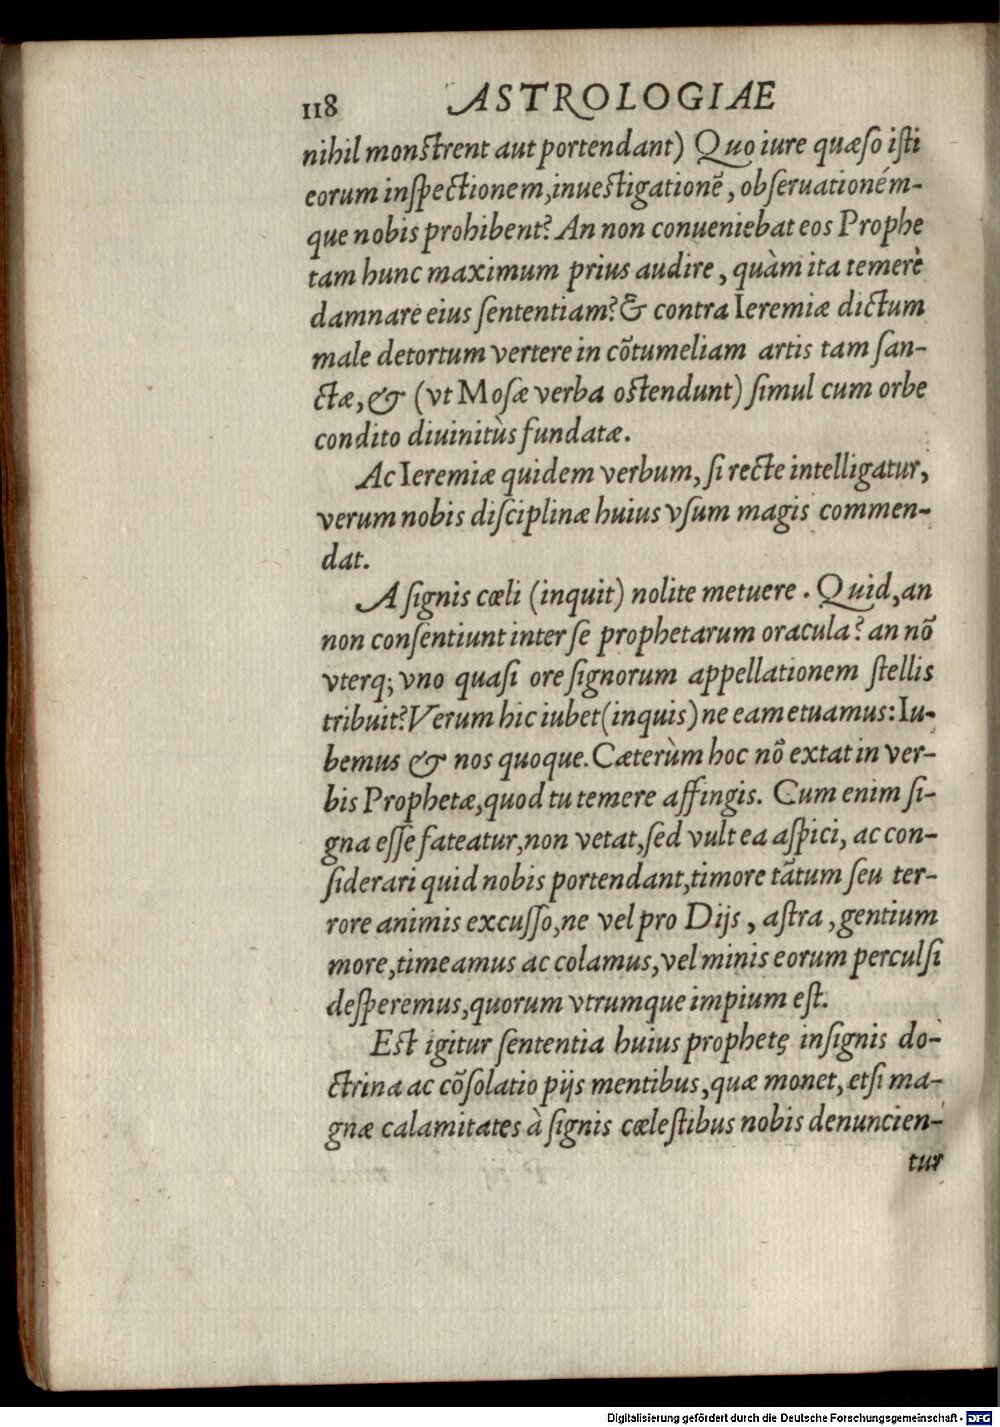 118 ASTROLOGIAE
nihil monſtrent aut portendant) Quo iure quæſo iſti
eorum inſpectionem, inueſtigationẽ, obſeruationém-
que nobis prohibent? An non conueniebat eos Prophe
tam hunc maximum prius audire, quàm ita temerè
damnare eius ſententiam? & contra Ieremiæ dictum
male detortum vertere in cõtumeliam artis tam ſan-
ctæ, & (vt Moſæ verba oſtendunt) ſimul cum orbe
condito diuinitùs fundatæ.
Ac Ieremiæ quidem verbum, ſi recte intelligatur,
verum nobis diſciplinæ huius vſum magis commen-
dat.
A ſignis cœli (inquit) nolite metuere. Quid, an
non conſentiunt inter ſe prophetarum oracula? an nõ
vterq; vno quaſi ore ſignorum appellationem ſtellis
tribuit? Verum hic iubet (inquis) ne ea metuamus: Iu-
bemus & nos quoque. Cæterùm hoc nõ extat in ver-
bis Prophetæ, quod tu temere affingis. Cum enim ſi-
gna eſſe fateatur, non vetat, ſed vult ea aſpici, ac con-
ſiderari quid nobis portendant, timore tãtum ſeu ter-
rore animis excuſſo, ne vel pro Dijs, aſtra, gentium
more, timeamus ac colamus, vel minis eorum perculſi
deſperemus, quorum vtrumque impium eſt.
Eſt igitur ſententia huius prophetę inſignis do-
ctrina ac cõſolatio pijs mentibus, quæ monet, etſi ma-
gnæ calamitates à ſignis cœleſtibus nobis denuncien-
tur
Digitalisierung gefördert durch die Deutsche Forschungsgemeinschaft - DFG